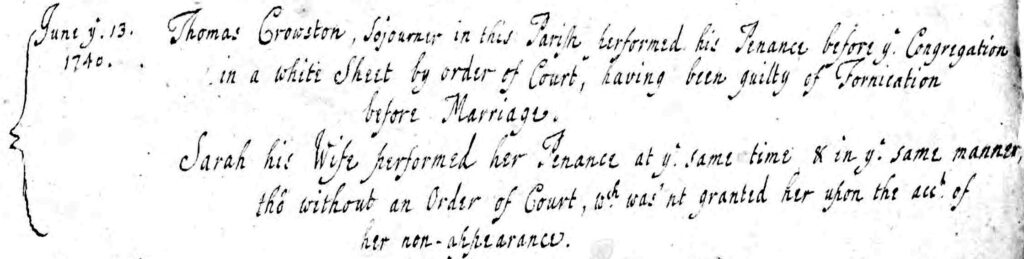 June yͤ. 13. Thomas Crowston, Sojourner in this Parish performed his Penance before yͤ. Congregation
1740. in a white Sheet by order of Court, having been guilty of Fornication
before Marriage.
Sarah his Wife performed her Penance at yͤ. same time & in yͤ. same manner,
tho' without an Order of Court, wͨͪ was'nt granted her upon the accᵗ. of
her non-appearance.